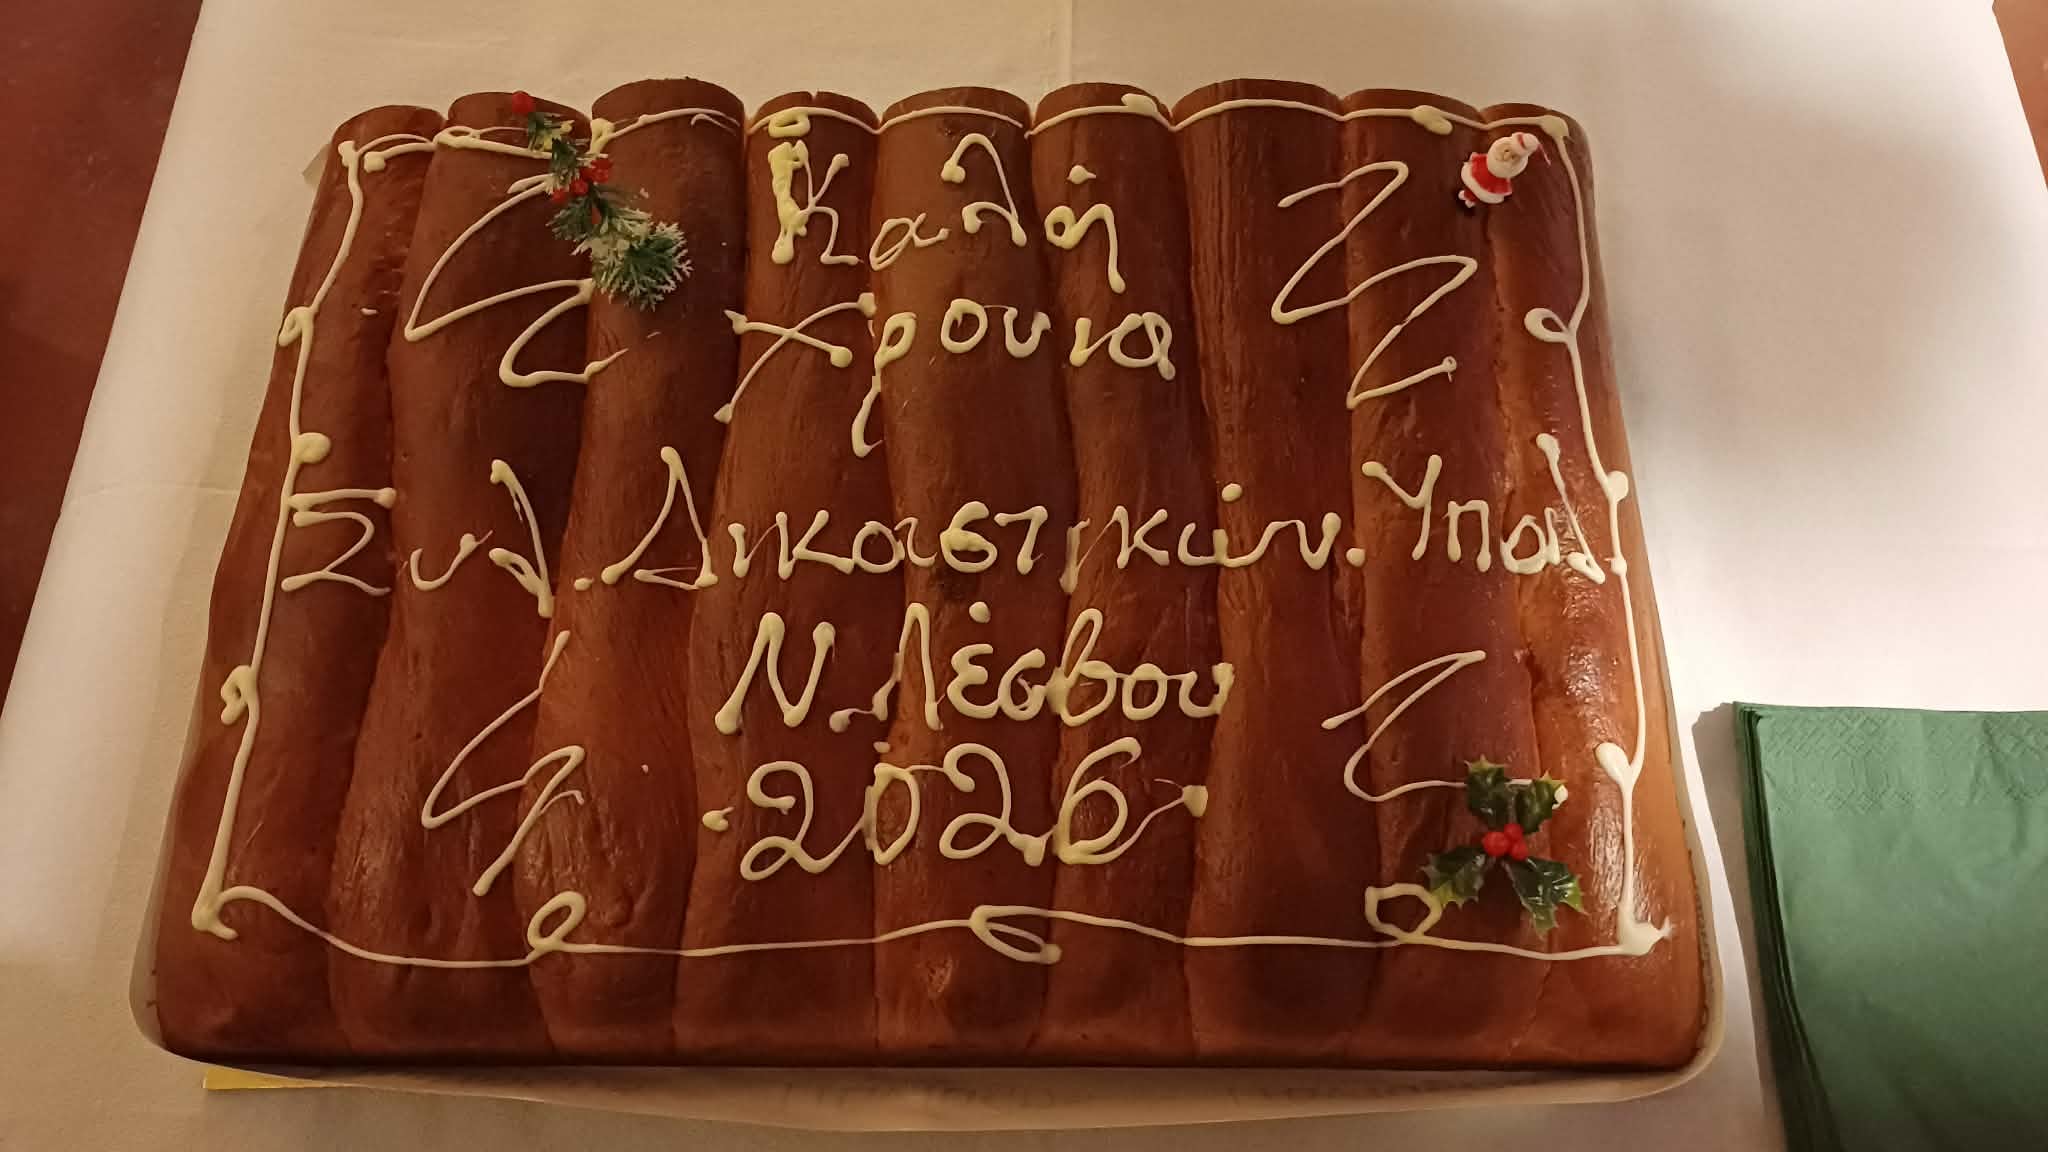 Καλή
χρονιά
Συλ. Δικαστικών. Υπαλ.
Ν. Λέσβου
2026